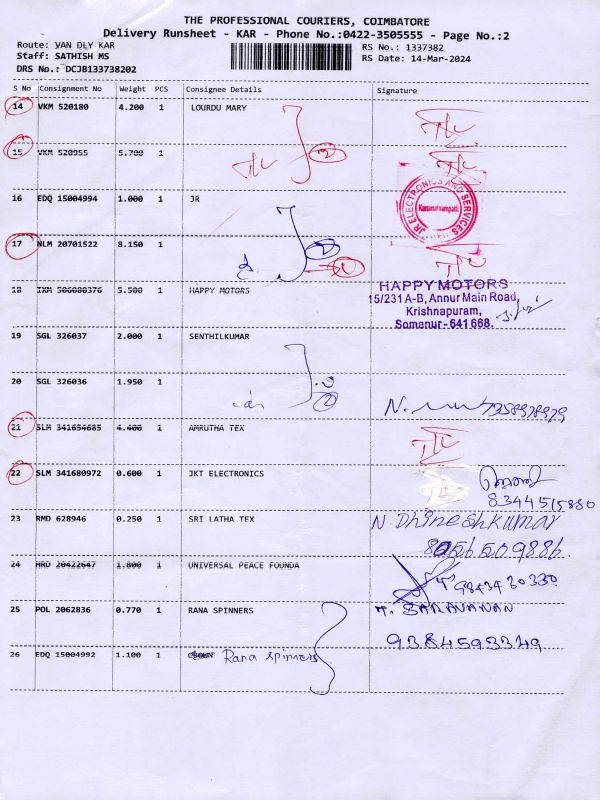 THE PROFESSIONAL COURIERS, COIMBATORE
Delivery Runsheet - KAR - Phone No.:0422-3505555 - Page No.:2
Route: VAN DLY KAR
RS No.: 1337382
Staff: SATHISH MS
RS Date: 14-Mar-2024
DRS No.: DCJB133738202
S No Consignment No Weight PCS Consignee Details Signature
14 VKM 520180 4.200 1 LOURDU MARY
15 VKM 520955 5.700 1
16 EDQ 15004994 1.000 1 JR
JR ELECTRONICS AND SERVICES
17 NLM 20701522 8.150 1
18 506080376 5.500 1 HAPPY MOTORS
HAPPY MOTORS
15/231 A-B, Annur Main Road,
Krishnapuram,
Somanur - 641 668.
19 SGL 326037 2.000 1 SENTHILKUMAR
20 SGL 326036 1.950 1
7358978979
21 SLM 341654685 4.400 1 AMRUTHA TEX
22 SLM 341680972 0.600 1 JKT ELECTRONICS
8344515880
23 RMD 628946 0.250 1 SRI LATHA TEX
N. Dhineshkumar
8056509886.
24 HRD 20422647 1.800 1 UNIVERSAL PEACE FOUNDA
9843430330
25 POL 2062836 0.770 1 RANA SPINNERS
SARAVANAN
9384593349
26 EDQ 15004992 1.100 1 Rana spinners